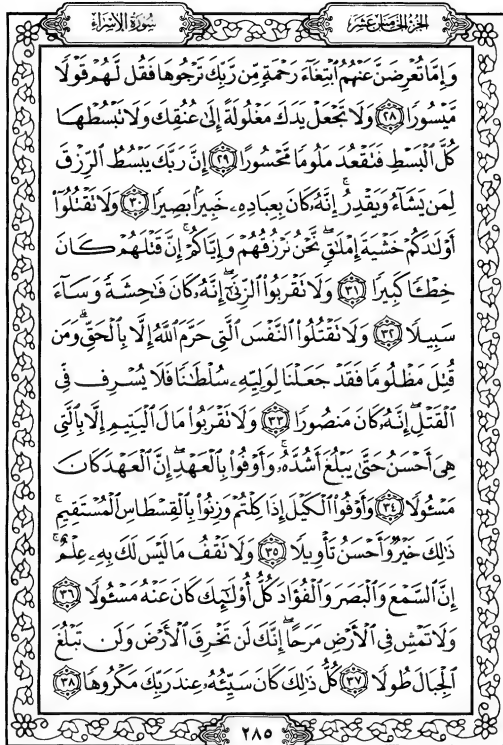 سُورَةُ الْإِسْرَاءِ
الجُزْءُ الخَامِسَ عَشَرَ
وَإِمَّا تُعْرِضَنَّ عَنْهُمُ ابْتِغَآءَ رَحْمَةٍ مِّن رَّبِّكَ تَرْجُوهَا فَقُل لَّهُمْ قَوْلًا
مَّيْسُورًا ٢٨ وَلَا تَجْعَلْ يَدَكَ مَغْلُولَةً إِلَىٰ عُنُقِكَ وَلَا تَبْسُطْهَا
كُلَّ الْبَسْطِ فَتَقْعُدَ مَلُومًا مَّحْسُورًا ٢٩ إِنَّ رَبَّكَ يَبْسُطُ الرِّزْقَ
لِمَن يَشَآءُ وَيَقْدِرُ ۚ إِنَّهُۥ كَانَ بِعِبَادِهِۦ خَبِيرًۢا بَصِيرًا ٣٠ وَلَا تَقْتُلُوٓا۟
أَوْلَٰدَكُمْ خَشْيَةَ إِمْلَٰقٍ ۖ نَّحْنُ نَرْزُقُهُمْ وَإِيَّاكُمْ ۚ إِنَّ قَتْلَهُمْ كَانَ
خِطْـًٔا كَبِيرًا ٣١ وَلَا تَقْرَبُوا۟ الزِّنَىٰٓ ۖ إِنَّهُۥ كَانَ فَٰحِشَةً وَسَآءَ
سَبِيلًا ٣٢ وَلَا تَقْتُلُوا۟ النَّفْسَ الَّتِى حَرَّمَ اللَّهُ إِلَّا بِالْحَقِّ ۗ وَمَن
قُتِلَ مَظْلُومًا فَقَدْ جَعَلْنَا لِوَلِيِّهِۦ سُلْطَٰنًا فَلَا يُسْرِف فِّى
الْقَتْلِ ۖ إِنَّهُۥ كَانَ مَنصُورًا ٣٣ وَلَا تَقْرَبُوا۟ مَالَ الْيَتِيمِ إِلَّا بِالَّتِى
هِىَ أَحْسَنُ حَتَّىٰ يَبْلُغَ أَشُدَّهُۥ ۚ وَأَوْفُوا۟ بِالْعَهْدِ ۖ إِنَّ الْعَهْدَ كَانَ
مَسْـُٔولًا ٣٤ وَأَوْفُوا۟ الْكَيْلَ إِذَا كِلْتُمْ وَزِنُوا۟ بِالْقِسْطَاسِ الْمُسْتَقِيمِ ۚ
ذَٰلِكَ خَيْرٌ وَأَحْسَنُ تَأْوِيلًا ٣٥ وَلَا تَقْفُ مَا لَيْسَ لَكَ بِهِۦ عِلْمٌ ۚ
إِنَّ السَّمْعَ وَالْبَصَرَ وَالْفُؤَادَ كُلُّ أُو۟لَٰٓئِكَ كَانَ عَنْهُ مَسْـُٔولًا ٣٦
وَلَا تَمْشِ فِى الْأَرْضِ مَرَحًا ۖ إِنَّكَ لَن تَخْرِقَ الْأَرْضَ وَلَن تَبْلُغَ
الْجِبَالَ طُولًا ٣٧ كُلُّ ذَٰلِكَ كَانَ سَيِّئُهُۥ عِندَ رَبِّكَ مَكْرُوهًا ٣٨
٢٨٥